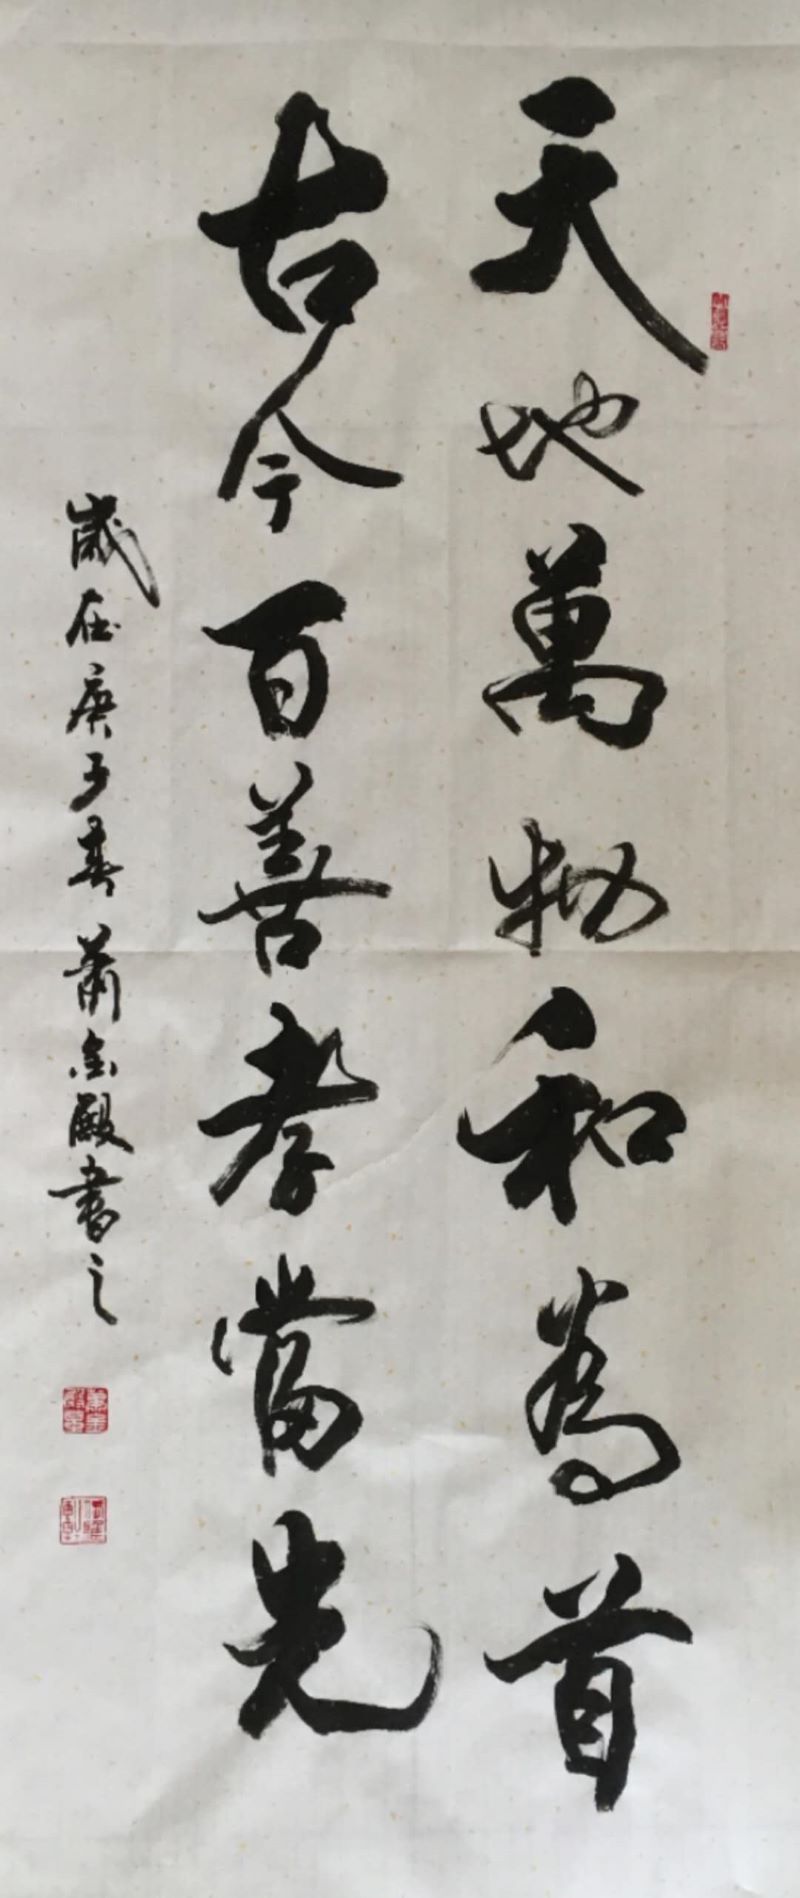 天地萬物和為首
古今百善孝當先
歲在庚子春蕭金殿書之